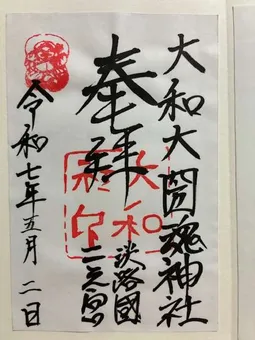 大和大圀魂神社
淡路國
二之宮
奉拝
大和
社印
令和七年五月二日